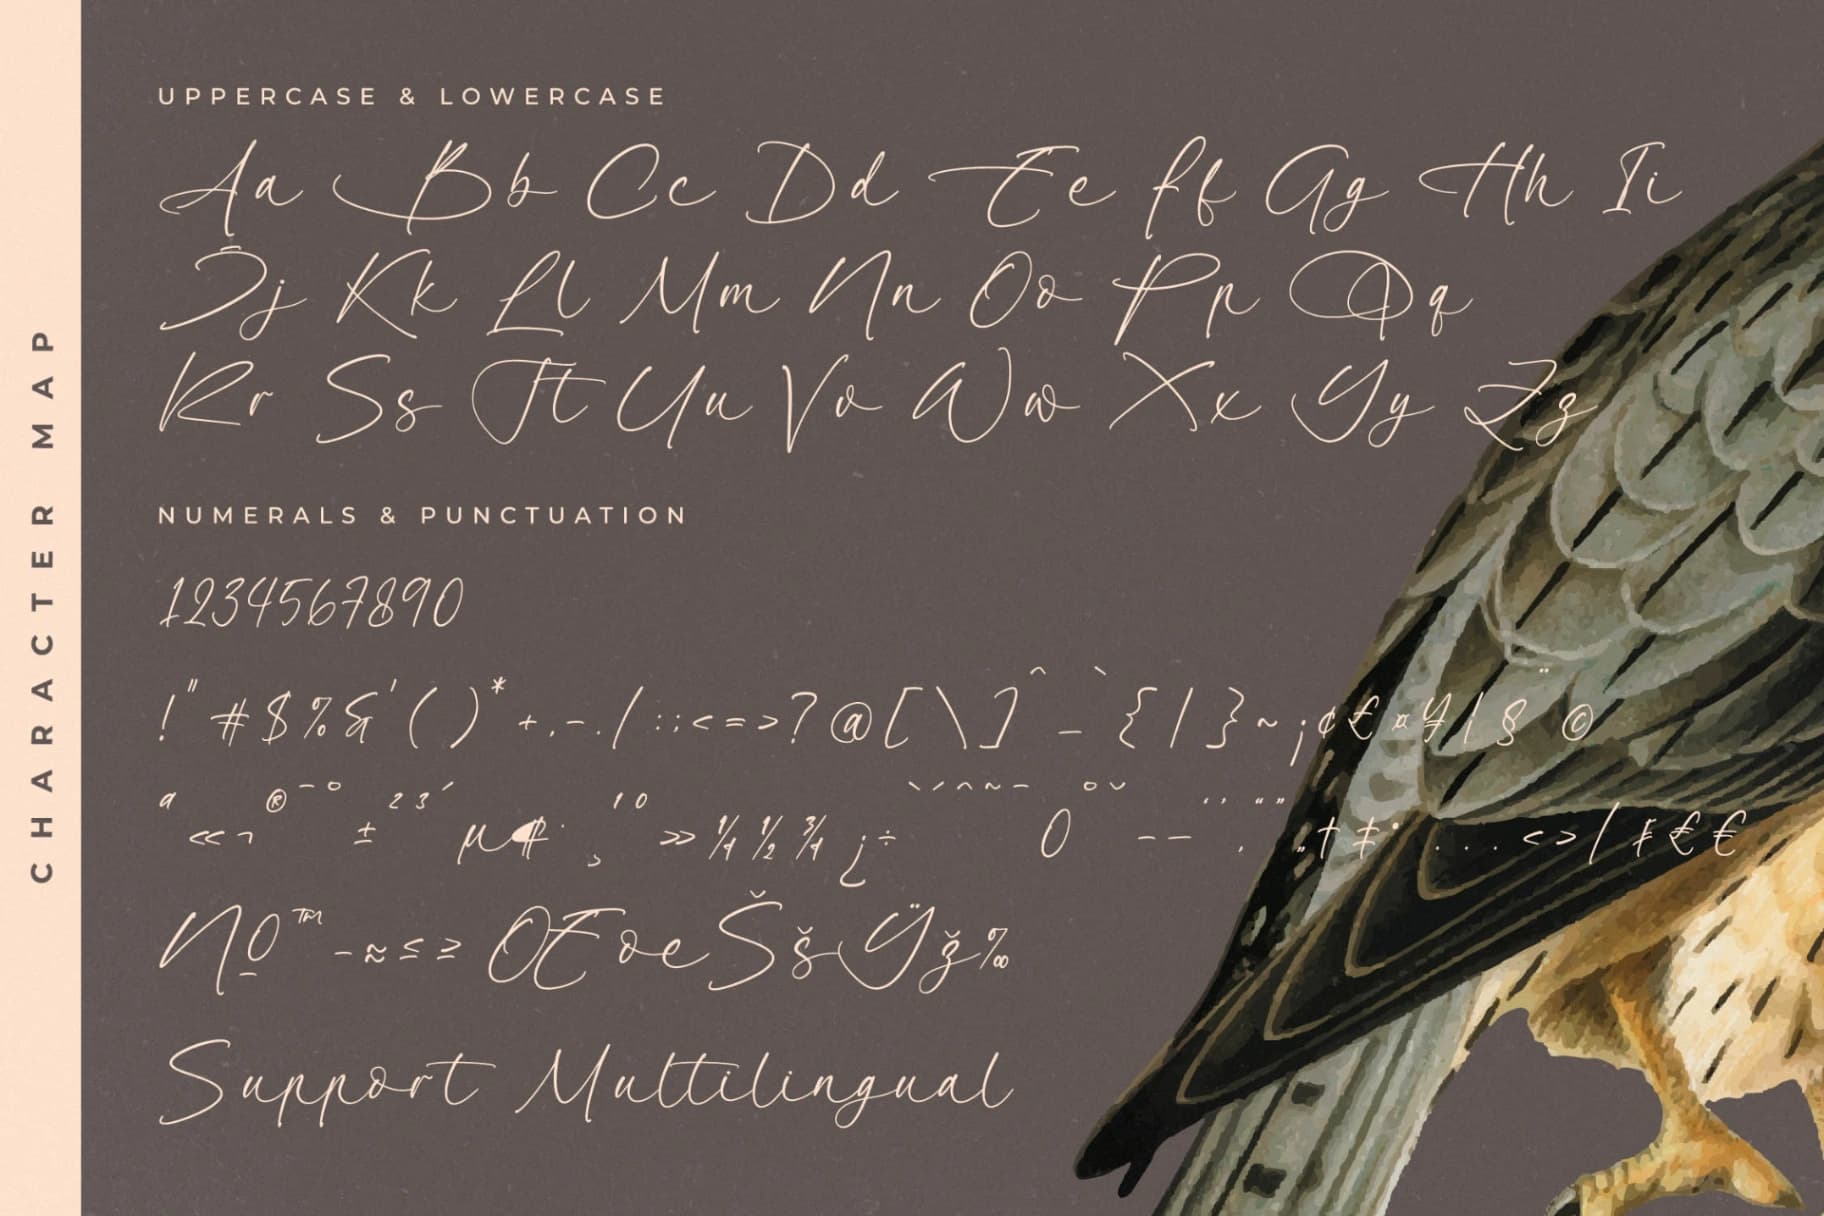 CHARACTER MAP
UPPERCASE & LOWERCASE
Aa Bb Cc Dd Ee Ff Gg Hh Ii
Jj Kk Ll Mm Nn Oo Pp Qq
Rr Ss Tt Uu Vv Ww Xx Yy Zz
NUMERALS & PUNCTUATION
1234567890
!"#$%&'()*+,-./:;<=>?@[\]^_`{|}~¡¢£¤¥¦§¨©
ª«¬®¯°±²³´µ¶·¸¹º»¼½¾¿÷
№™−≈≤≥ŒœŠšŸž‰
Support Multilingual